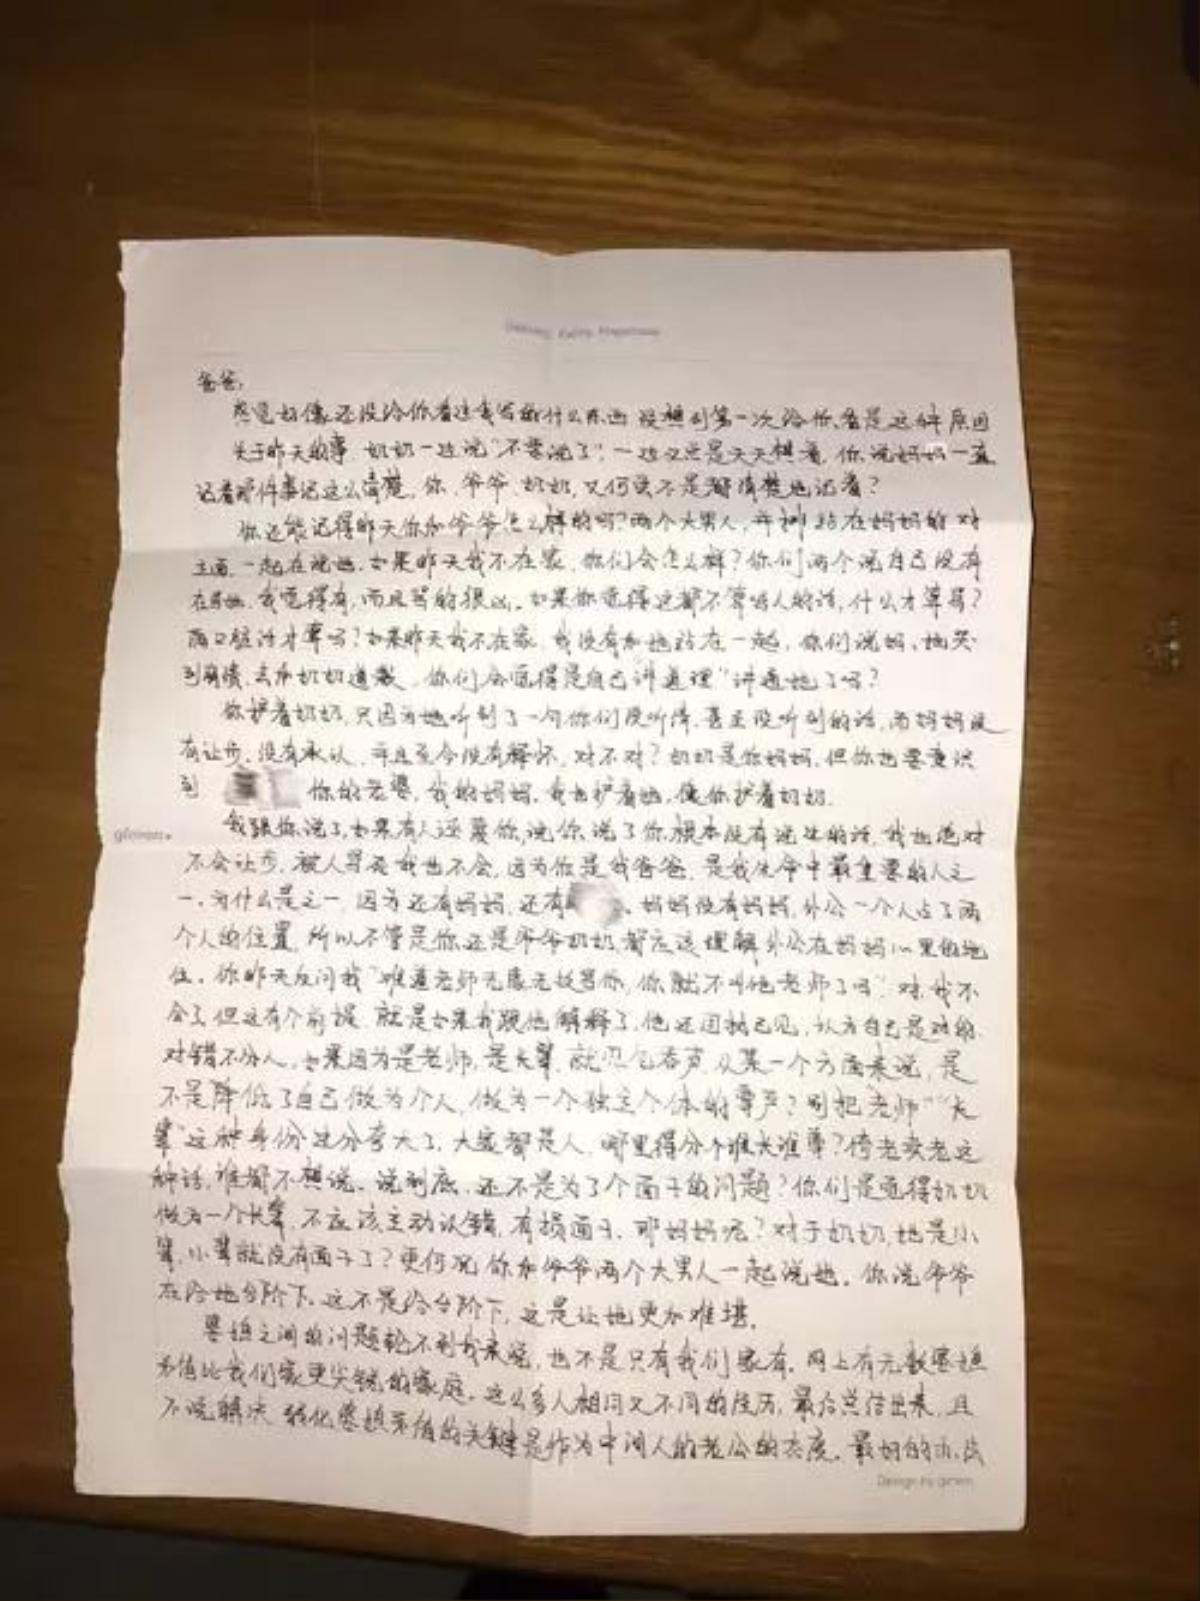 爸爸:
感觉好像还没给你看过我写的什么东西 没想到第一次给你看是这种原因
关于昨天的事 奶奶一边说"不要说了",一边又总是天天棋着,你说妈妈一直
记着那件事记这么清楚,你、爷爷、奶奶,又何尝不是都清楚地记着?
你还能记得昨天你和爷爷怎么样的吗?两个大男人,并排站在妈妈的对
立面,一起在说她,如果昨天我不在家,你们会怎么样?你们两个说自己没有
在骂她,我觉得有,而且骂的很凶。如果你觉得这都不算骂人的话,什么才算骂?
两口脏话才算吗?如果昨天我不在家,我没有和她站在一起,你们说妈,她哭
到崩溃,去和奶奶道歉,你们会觉得是自己讲道理"讲通她了吗?
你护着奶奶,只因为她听到了一句你们没听清,甚至没听到的话,而妈妈没
有让步,没有承认,并且至今没有释怀,对不对?奶奶是你妈妈,但你也要意识
到 你的老婆,我的妈妈,我也护着她,像你护着奶奶.
我跟你说了,如果有人诬蔑你,说你说了你根本没有说过的话,我也绝对
不会让步,被人骂死我也不会,因为你是我爸爸,是我生命中最重要的人之
一,为什么是之一,因为还有妈妈,还有 、妈妈没有妈妈,外公一个人占了两
个人的位置,所以不管是你还是爷爷奶奶,都应该理解外公在妈妈心里的地
位。你昨天反问我"难道老师无缘无故骂你,你就不叫他老师了吗",对,我不
会了,但这有个前提,就是如果我跟他解释了,他还固执己见,认为自己是对的.
对错不分人,如果因为是老师,是长辈,就忍气吞声,从某一个方面来说,是
不是降低了自己做为个人,做为一个独立个体的尊严?别把"老师""长
辈"这种身份过分夸大了,大家都是人,哪里得分个谁长谁尊?倚老卖老这
种话,谁都不想说。说到底,还不是为了个面子的问题?你们是觉得奶奶
做为一个长辈,不应该主动认错,有损面子,那妈妈呢?对于奶奶,她是小
辈,小辈就没有面子了?更何况你和爷爷两个大男人一起说她。你说爷爷
在给她台阶下,这不是给台阶下,这是让她更加难堪。
婆媳之间的问题轮不到我来说,也不是只有我们家有,网上有无数婆媳
矛盾比我们家更尖锐的家庭。这么多人相同又不同的经历,最后总结出来,且
不说解决 转化婆媳矛盾的关键是作为中间人的老公的态度。最好的办法
Design by gimen